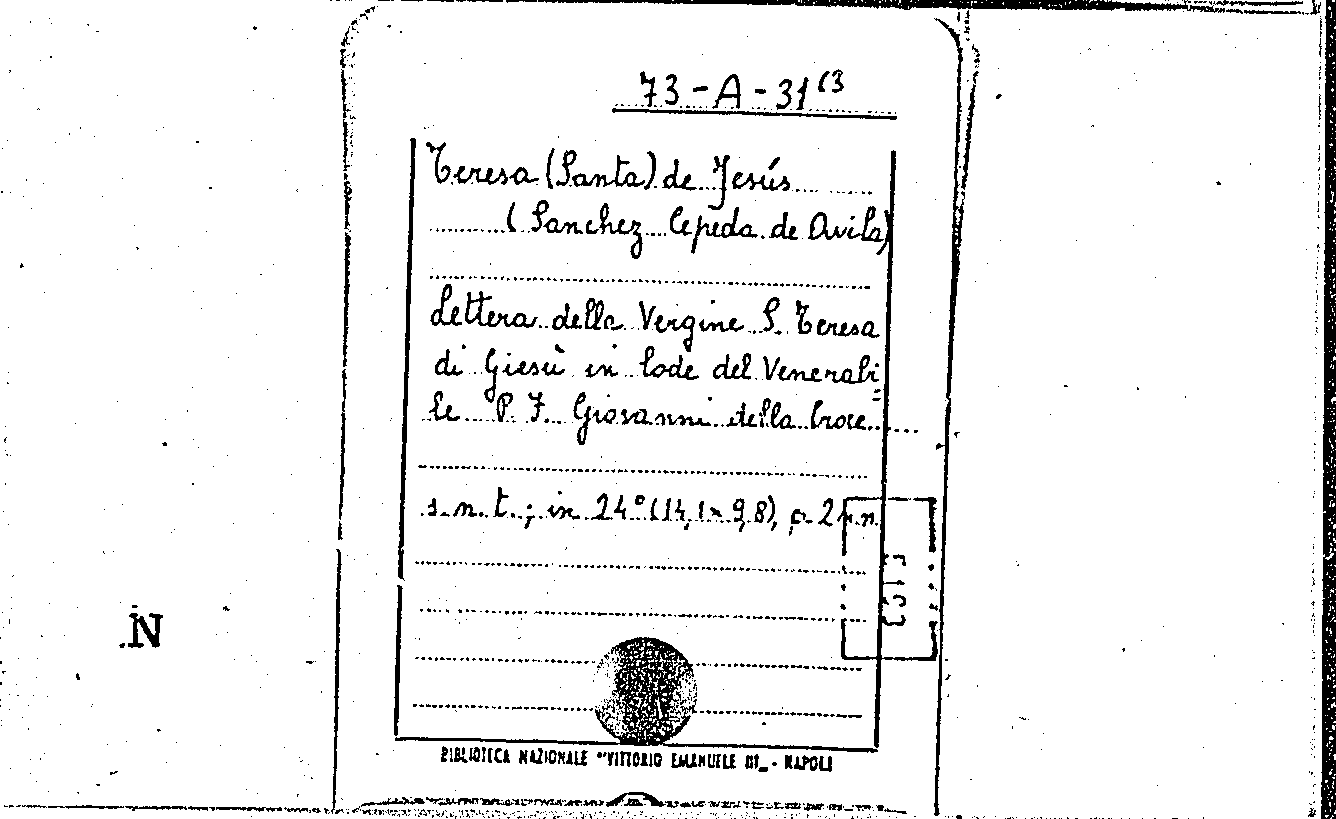 73-A-31(3
Teresa (Santa) de Jesús
(Sanchez Cepeda de Avila)
Lettera della Vergine S. Teresa
di Giesù in lode del Venerabi=
le P. F. Giovanni della Croce
s.n.t.; in 24° (14,1 x 9,8), p. 2 n.n.
N
BIBLIOTECA NAZIONALE "VITTORIO EMANUELE III" - NAPOLI